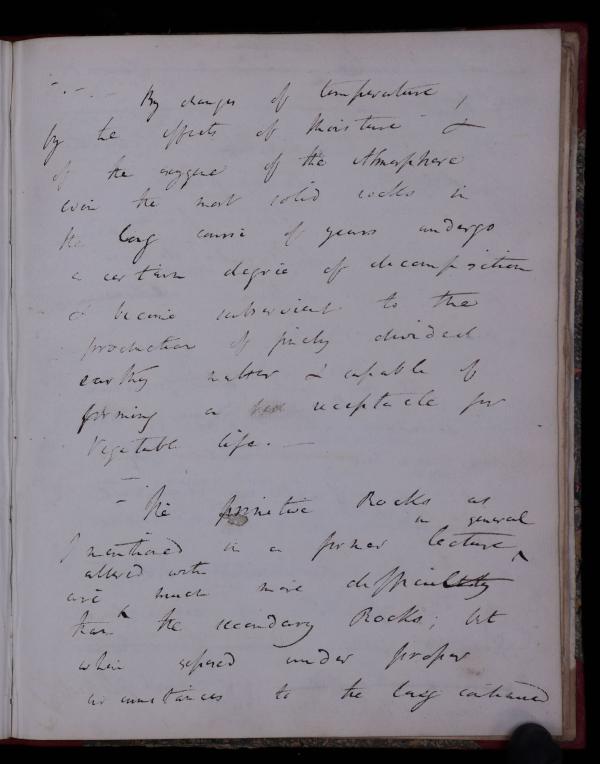 By changes of temperature,
by the effects of Moisture &
of the oxygene of the Atmosphere
even the most solid rocks in
the long course of years undergo
a certain degree of decomposition
& become subservient to the
production of finely divided
earthy matter & capable of
forming a receptacle for
Vegetable life. —
— The primitive Rocks as
I mentioned in a former lecture, in general
are altered with much more difficulty
than the secondary Rocks; but
when exposed under proper
circumstances to the long continued